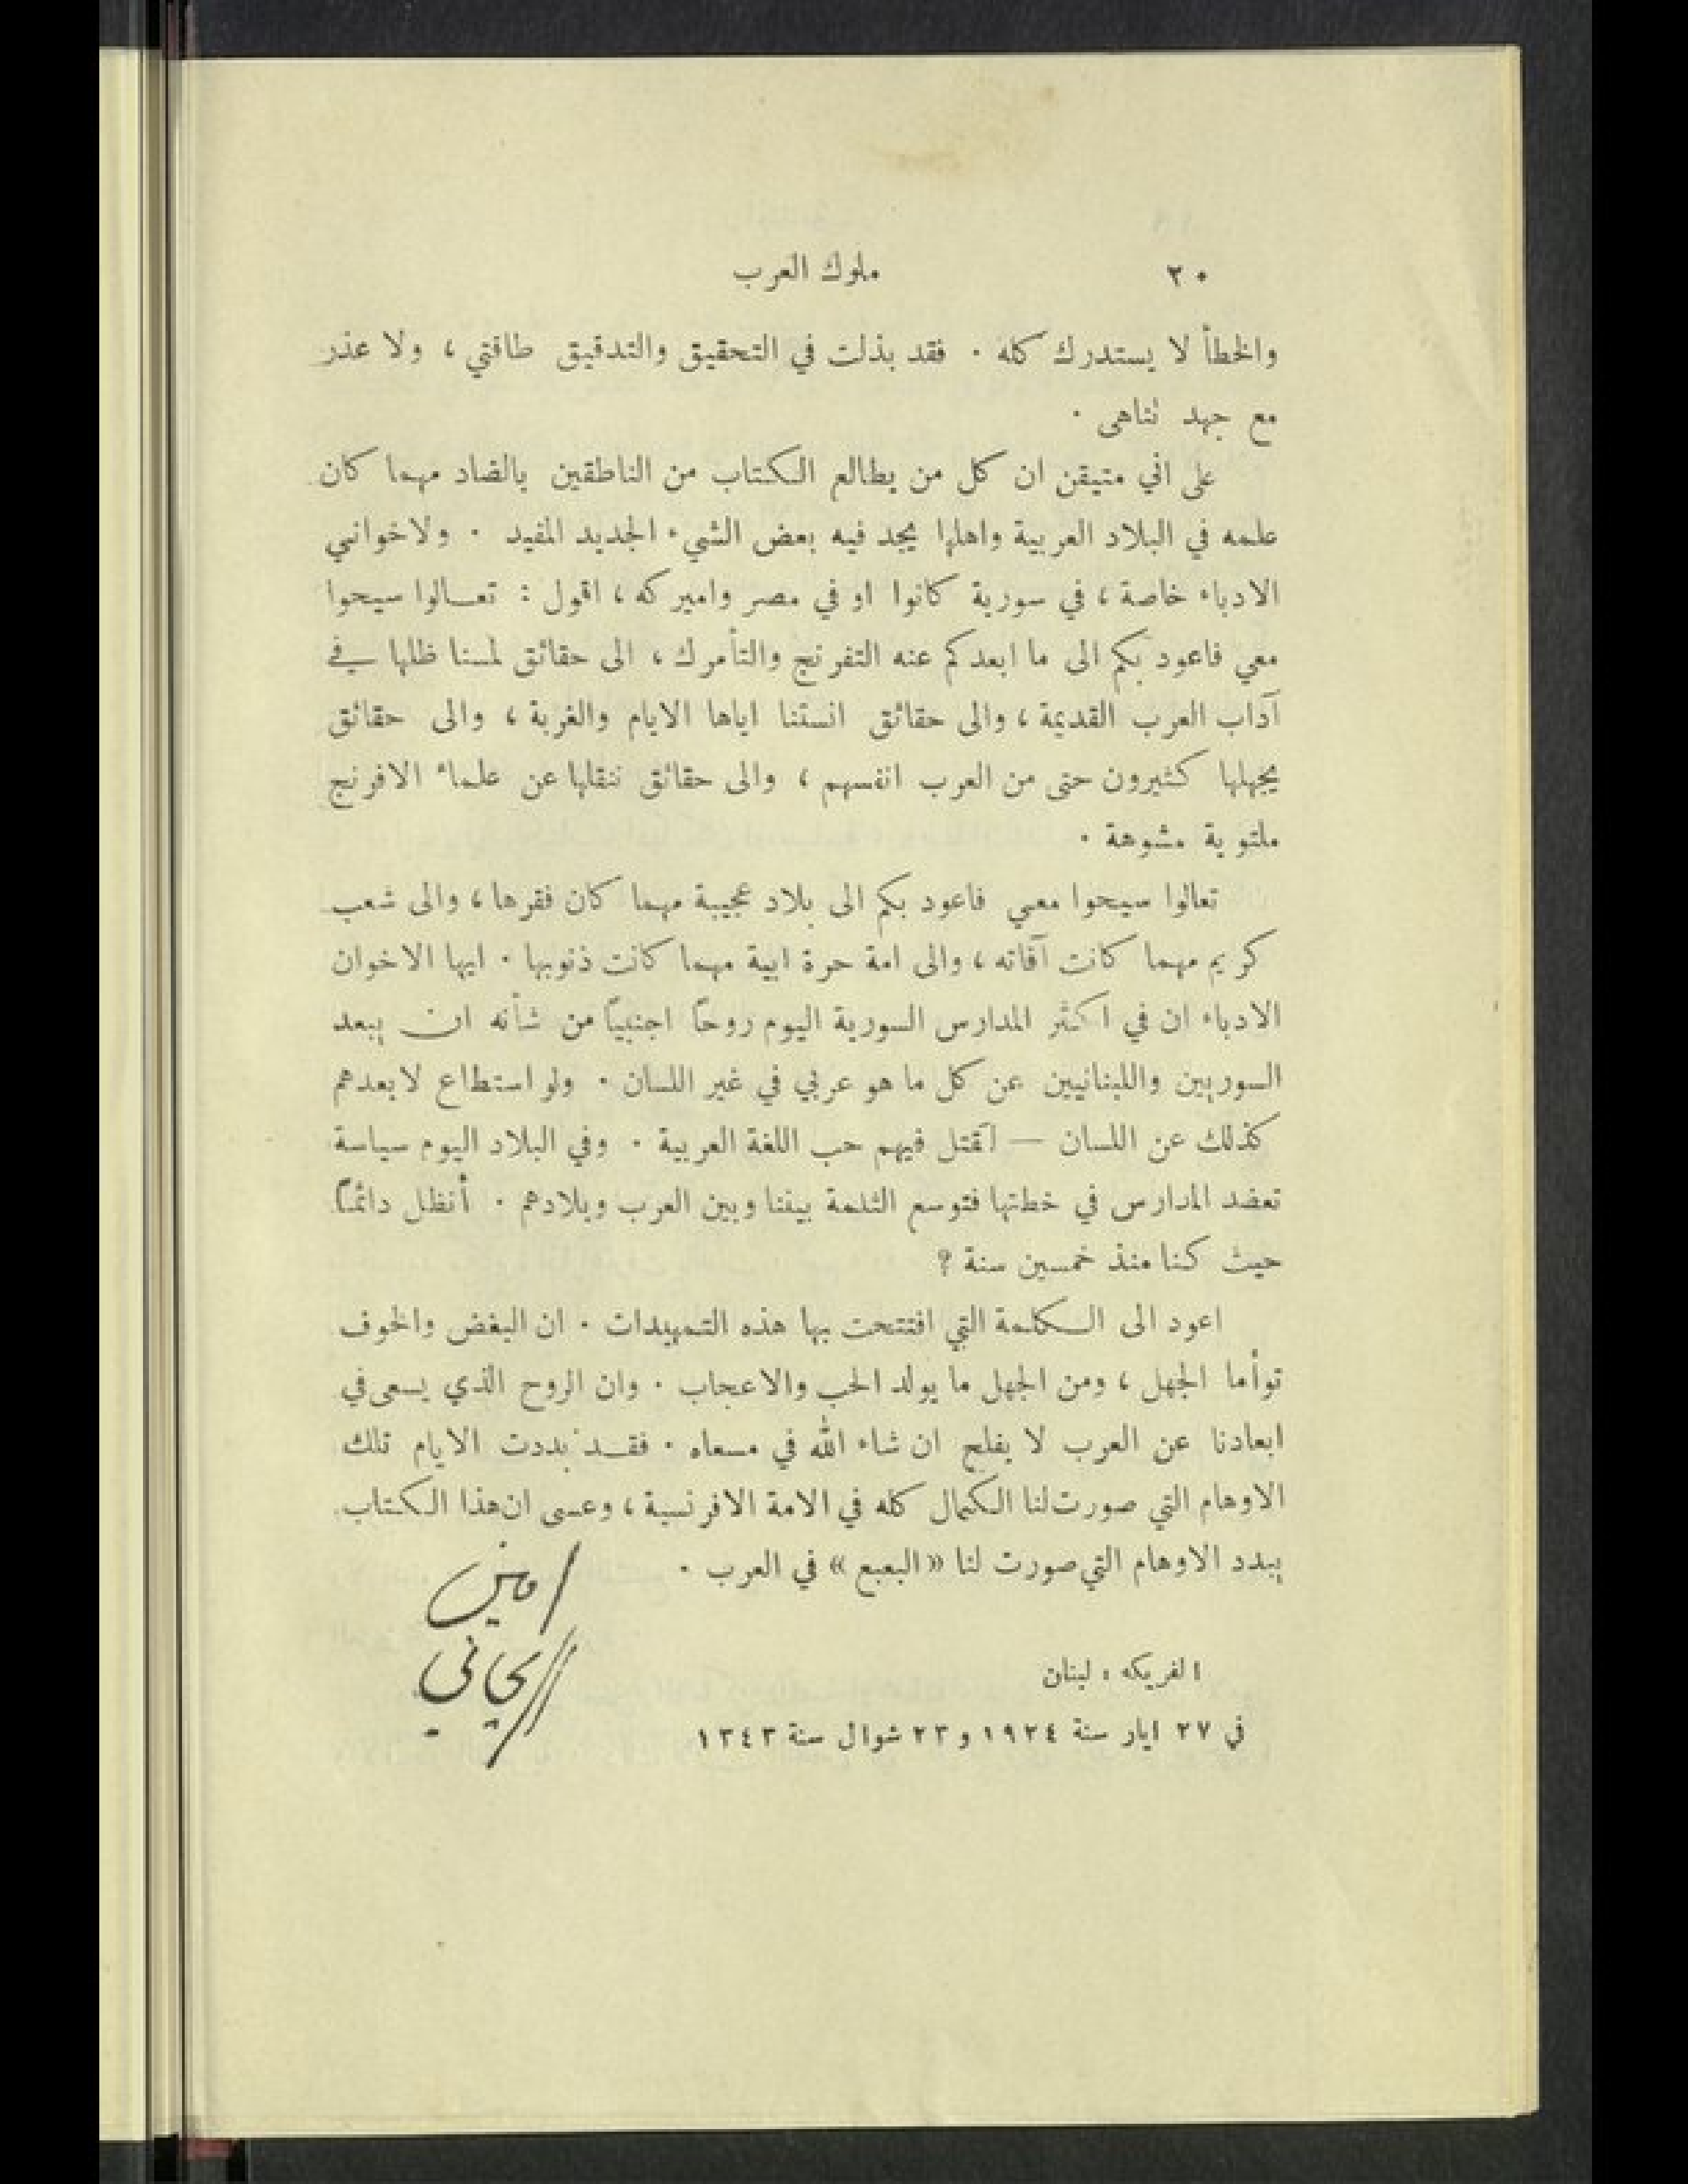 ٢٠ ملوك العرب
والخطأ لا يستدرك كله . فقد بذلت في التحقيق والتدقيق طاقتي ، ولا عذر
مع جهد تناهى .
على اني متيقن ان كل من يطالع الكتاب من الناطقين بالضاد مهما كان
علمه في البلاد العربية واهلها يجد فيه بعض الشيء الجديد المفيد . ولاخواني
الادباء خاصة ، في سورية كانوا او في مصر واميركه ، اقول : تعالوا سيحوا
معي فاعود بكم الى ما ابعدكم عنه التفرنج والتأمرك ، الى حقائق لمسنا ظلها في
آداب العرب القديمة ، والى حقائق انستنا اياها الايام والغربة ، والى حقائق
يجهلها كثيرون حتى من العرب انفسهم ، والى حقائق ننقلها عن علماء الافرنج
ملتوية مشوهة .
تعالوا سيحوا معي فاعود بكم الى بلاد عجيبة مهما كان فقرها ، والى شعب
كريم مهما كانت آفاته ، والى امة حرة ابية مهما كانت ذنوبها . ايها الاخوان
الادباء ان في اكثر المدارس السورية اليوم روحًا اجنبيًا من شأنه ان يبعد
السوريين واللبنانيين عن كل ما هو عربي في غير اللسان . ولو استطاع لابعدهم
كذلك عن اللسان — لقتل فيهم حب اللغة العربية . وفي البلاد اليوم سياسة
تعضد المدارس في خطتها فتوسع الثلمة بيننا وبين العرب وبلادهم . أنظل دائمًا
حيث كنا منذ خمسين سنة ؟
اعود الى الكلمة التي افتتحت بها هذه التمهيدات . ان البغض والخوف
توأما الجهل ، ومن الجهل ما يولد الحب والاعجاب . وان الروح الذي يسعى في
ابعادنا عن العرب لا يفلح ان شاء الله في مسعاه . فقد بددت الايام تلك
الاوهام التي صورت لنا الكمال كله في الامة الافرنسية ، وعسى ان هذا الكتاب
يبدد الاوهام التي صورت لنا « البعبع » في العرب .
امين
الريحاني
الفريكه ، لبنان
في ٢٧ ايار سنة ١٩٢٤ و ٢٣ شوال سنة ١٣٤٣